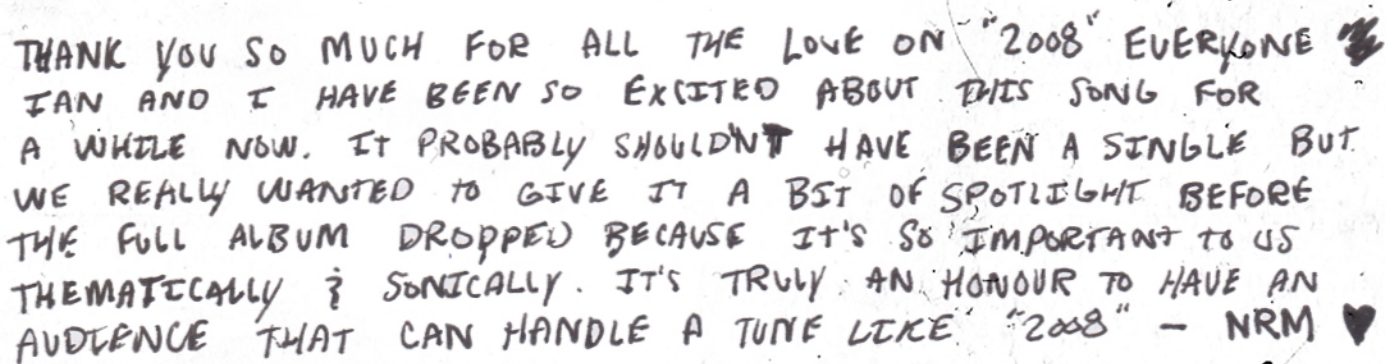 THANK YOU SO MUCH FOR ALL THE LOVE ON "2008" EVERYONE
IAN AND I HAVE BEEN SO EXCITED ABOUT THIS SONG FOR
A WHILE NOW. IT PROBABLY SHOULDN'T HAVE BEEN A SINGLE BUT
WE REALLY WANTED TO GIVE IT A BIT OF SPOTLIGHT BEFORE
THE FULL ALBUM DROPPED BECAUSE IT'S SO IMPORTANT TO US
THEMATICALLY & SONICALLY. IT'S TRULY AN HONOUR TO HAVE AN
AUDIENCE THAT CAN HANDLE A TUNE LIKE "2008" - NRM ♥